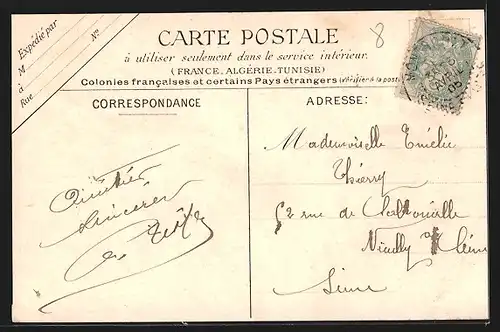 Expédié par
M
à
Rue
No
CARTE POSTALE
à utiliser seulement dans le service intérieur.
(FRANCE, ALGÉRIE-TUNISIE)
Colonies françaises et certains Pays étrangers (Vérifier à la poste)
CORRESPONDANCE
Amitiés
sincères
ADRESSE:
Mademoiselle Emélie
Thierry
52 rue de
Neuilly
Seine
8